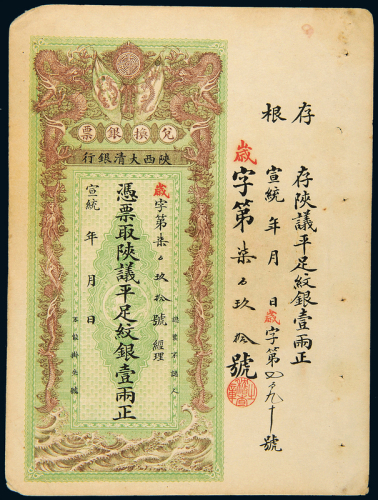 存根
存陝議平足紋銀壹兩正
宣統 年 月 日歲字第 九十號
歲字第柒百玖拾號
兌換銀票
陝西大清銀行
歲字第柒百玖拾號 經理
憑票取陝議平足紋銀壹兩正
宣統 年 月 日
認票不認人